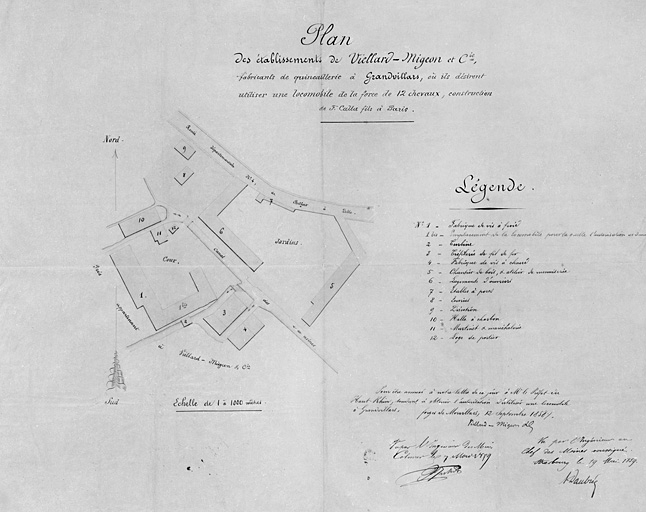 Plan
Des établissements de Viellard-Migeon et Cie,
fabricants de quincaillerie à Grandvillars, où ils désirent
utiliser une locomobile de la force de 12 chevaux, construction
de F. Calla fils à Paris.
Nord
Route départementale No 4 de Belfort à
9
8
7
10
11
12
6
Jardins
Cour
Canal
1
1 bis
2
3
4
5
Viellard-Migeon & Cie
Sud
Echelle de 1 à 1000 mètres
Légende.
No 1 - Fabrique de vis à froid
1 bis - Emplacement de la locomobile pour
2 - Turbine
3 - Tréfilerie de fil de fer
4 - Fabrique de vis à chaud
5 - Chantier de bois, & atelier de menuiserie
6 - Logements d'ouvriers
7 - Etables à porcs
8 - Ecuries
9 - Direction
10 - Halle à charbon
11 - Martinet & maréchalerie
12 - Loge de portier
Pour être annexé à notre lettre de ce jour à Mr le Préfet du
Haut Rhin, tendant à obtenir l'autorisation d'utiliser une locomobile
à Grandvillars. forges de Morvillars, 12 Septembre 1858.
Viellard-Migeon & Cie
Vu par l'Ingénieur des Mines
Colmar le 7 Mars 1859
Vu par l'Ingénieur en
Chef des Mines soussigné
Strasbourg le 19 Mai 1859.
A Daubrée